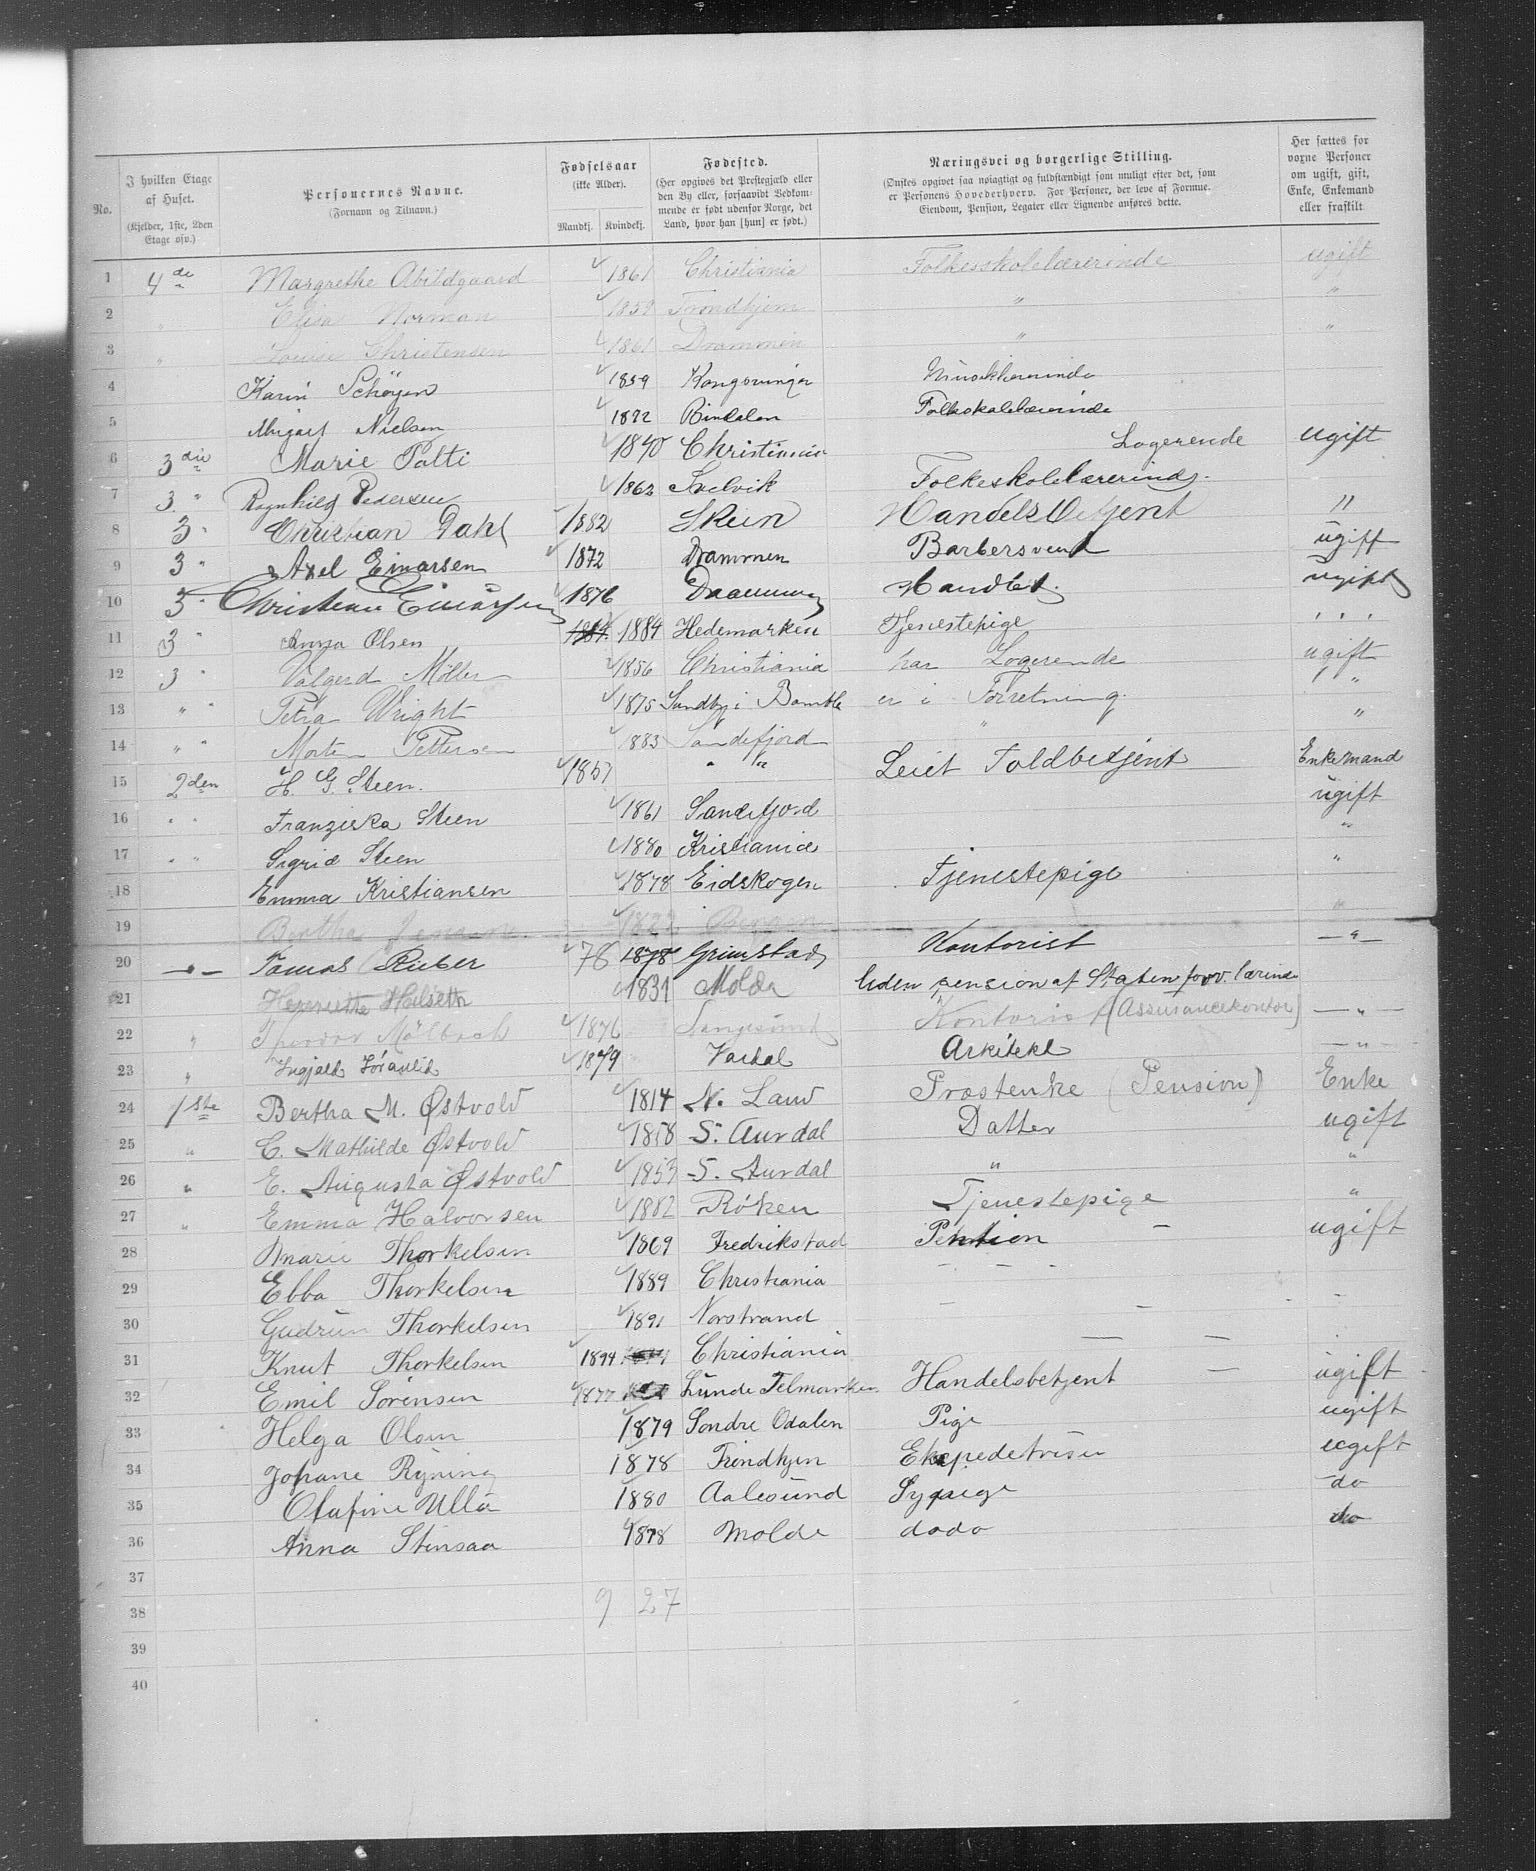 No.
I hvilken Etage af Huset. (Kjelder, 1ste, 2den Etage osv.)
Personernes Navne. (Fornavn og Tilnavn.)
Fødselsaar (ikke Alder). Mandkj. Kvindekj.
Fødested. (Her opgives det Prestegjæld eller den By eller, forsaavidt Vedkommende er født udenfor Norge, det Land, hvor han [hun] er født.)
Næringsvei og borgerlige Stilling. (Ønskes opgivet saa nøiagtigt og fuldstændigt som muligt efter det, som er Personens Hovederhverv. For Personer, der leve af Formue, Eiendom, Pension, Legater eller Lignende anføres dette.
Her sættes for voxne Personer om ugift, gift, Enke, Enkemand eller fraskilt
1 4de Margrethe Abildgaard 1861 Christiania Folkesskolelærerinde ugift
2 " Elisa Norman 1859 Trondhjem " "
3 " Louise Christensen 1861 Drammen " "
4 Karin Schøyen 1859 Kongsvinger Musiklærerinde
5 Nielsen 1872 Rindalen Folkskolelærerinde
6 3die Marie Patti 1840 Christiania Logerende ugift
7 3 " Ragnhild Pedersen 1862 Svelvik Folkeskolelærerinde.
8 3 " Christian Dahl 1882 Skien Handels Betjent "
9 3 " Axel Einarsen 1872 Drammen Barbersvend ugift
10 3 " Christian Einarsen 1876 Drammen Handlet ugift
11 3 " Anna Olsen 1884 Hedemarken Tjenestepige " " "
12 3 " Valgerd Møller 1856 Christiania har Logerende ugift
13 " " Petra Wright 1875 Sundby i Bamble er i Forretning. " "
14 " " Morten Pettersen 1883 Sandefjord " "
15 2den H. G. Steen. 1857 " " Leiet Toldbetjent Enkemand
16 " " Franziska Steen 1861 Sandefjord ugift
17 " " Sigrid Steen 1880 Kristiania "
18 Emma Kristiansen 1878 Eidskogen Tjenestepige "
19 Bertha Jensen 1822 Bergen "
20 —"— Tomas Rieber 78 1878 Grimstad Kontorist —"—
21 Henriette Helseth 1831 Molde liden pension af Staten forv. lærinde
22 " Theodor Mølbach 1876 Langesund Kontorist (Assurancekontor) —"—
23 " Ingjald 1879 Vartal Arkitekt —"—
24 1ste Bertha M. Østvold 1814 N. Land Prostenke (Pension) Enke
25 " C. Mathilde Østvold 1858 S. Aurdal Datter ugift
26 " E. Augusta Østvold 1853 S. Aurdal " "
27 " Emma Halvorsen 1882 Røken Tjenestepige "
28 Marie Thorkelsen 1869 Fredrikstad Pention — ugift
29 Ebba Thorkelsen 1889 Christiania - - -
30 Gudrun Thorkelsen 1891 Norstrand — —
31 Knut Thorkelsen 1894 Christiania — —
32 Emil Sørensen 1877 Lunde Telmarken. Handelsbetjent — ugift
33 Helga Olsen 1879 Søndre Odalen Pige ugift
34 Johane Ryning 1878 Trondhjem Ekspedetrise ugift
35 Olafine Ulla 1880 Aalesund Sypige do
36 Anna Stensaa 1878 Molde dodo do
37
38 9 27
39
40